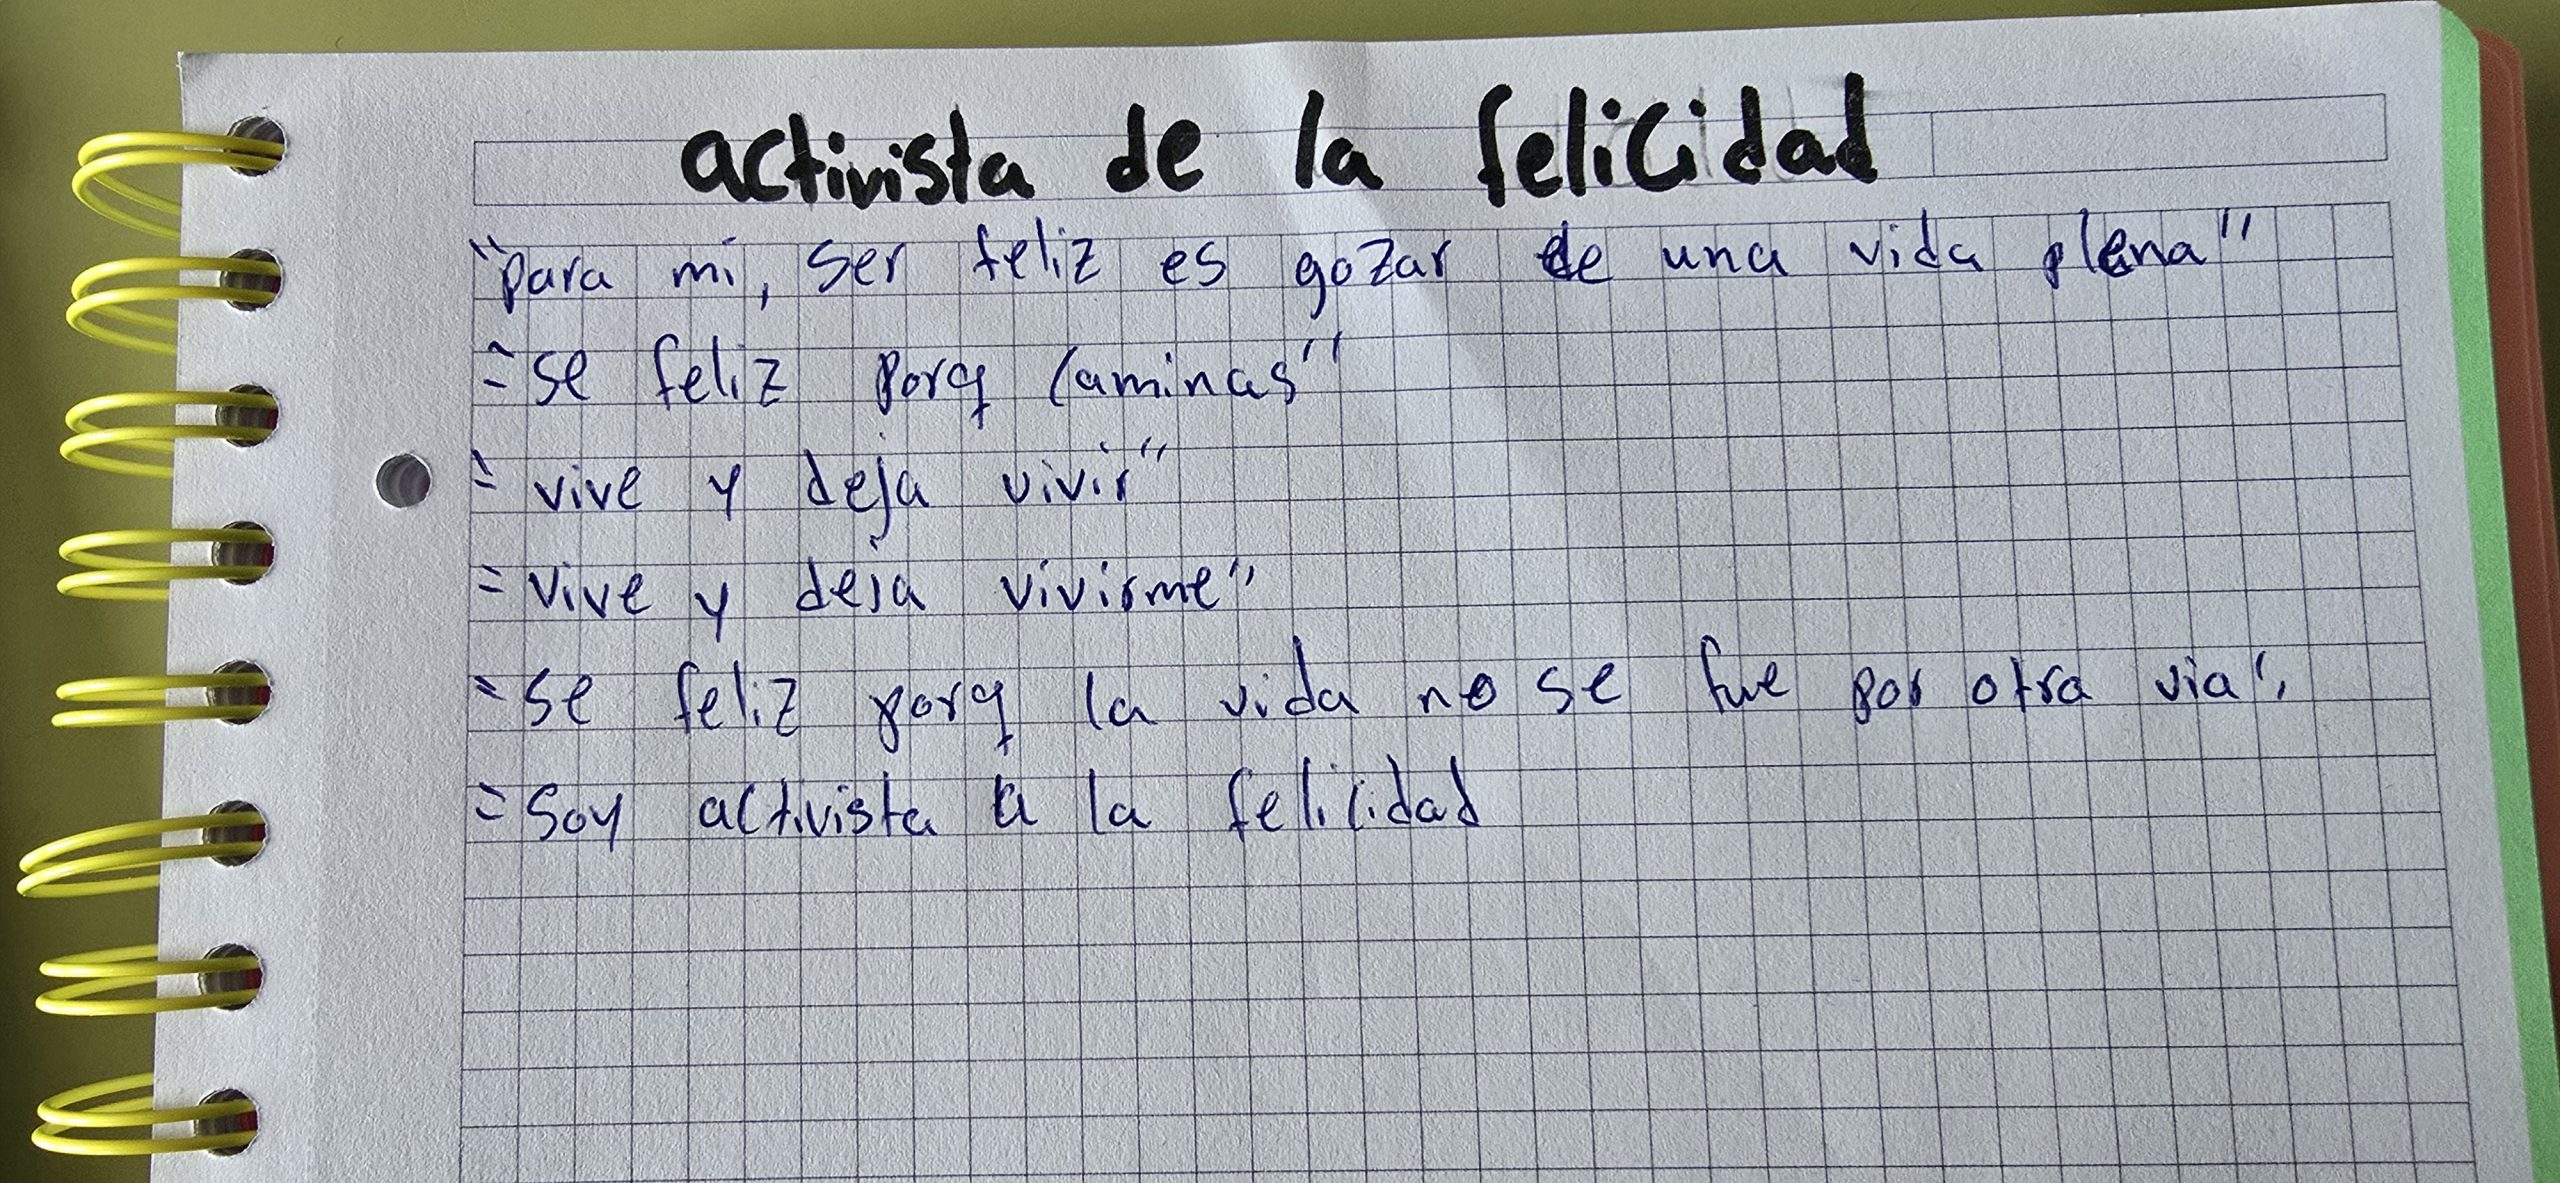 activista de la felicidad
"para mi, ser feliz es gozar de una vida plena"
"se feliz porq caminas"
"vive y deja vivir"
"vive y deja vivirme"
"se feliz porq la vida no se fue por otra via"
"soy activista a la felicidad